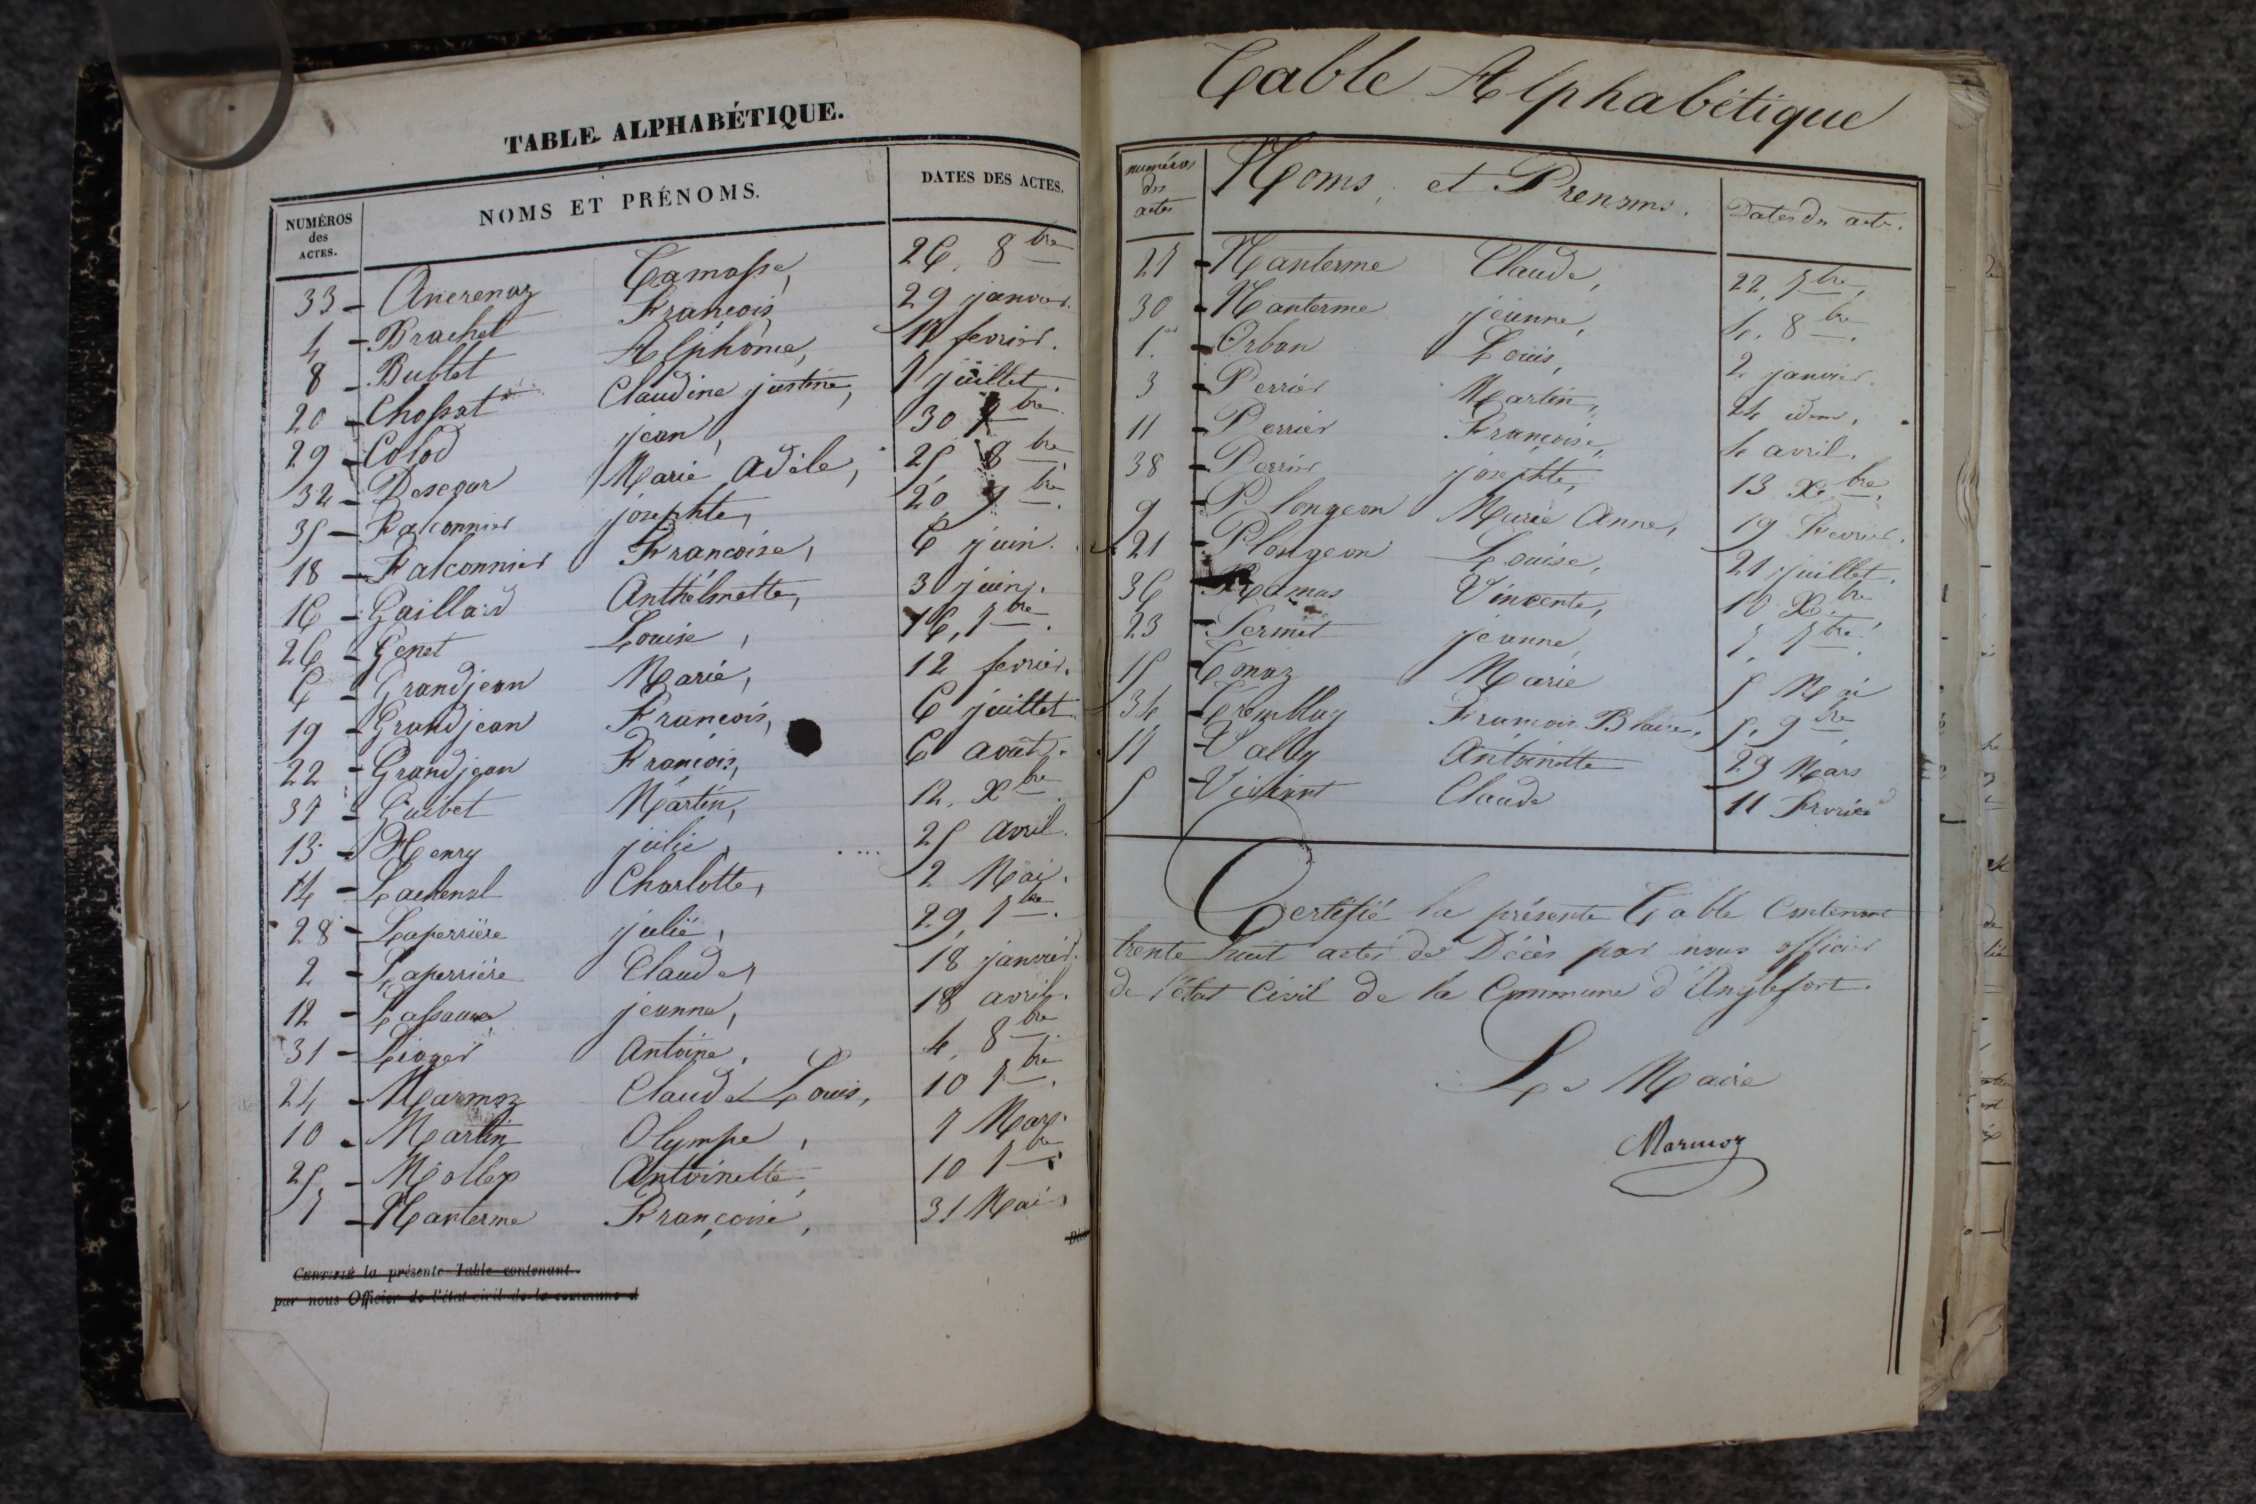 TABLE ALPHABÉTIQUE.
NUMÉROS des ACTES. NOMS ET PRÉNOMS. DATES DES ACTES.
33 - Ancrenaz 26. 8bre
4 - Brachet François 29 janvier.
8 - Bublet Alphonse, 17 fevrier.
20 - Chossat Claudine justine, 7 juillet.
29 - Colod jean, 30 7bre
32 - Descour Marie Adèle, 25, 8bre
35 - Falconnier josephte, 20, 9bre.
18 - Falconnier Françoise, 6 juin.
16 - Gaillard Anthelmette, 3 juin.
26 - Genet Louise, 16, 7bre.
6 - Grandjean Marie, 12 fevrier.
19 - Grandjean François, 6 juillet
22 - Grandjean François, 6 août.
37 - Guibet Martin, 12. Xbre
13 - Henry julie, 25 avril.
14 - Lachenal Charlotte, 2 Mai.
28 - Laperrière julie, 29, 7bre.
2 - Laperrière Claude, 18 janvier.
12 - Lassausse jeanne, 18 avril.
31 - Lioger Antoine, 4, 8bre
24 - Marmoz Claude Louis, 10 7bre.
10 - Martin Olympe, 7 Mars.
25 - Mollex Antoinette, 10 7bre
7 - Nanterme Françoise, 31 Mai
CERTIFIÉ la présente Table contenant
par nous Officier de l'état civil de la commune d
Table Alphabétique
numéros des actes Noms, et Prenoms. Dates des actes.
27 - Nanterme Claude, 22, 7bre,
30 - Nanterme jeanne, 4. 8bre.
1er - Orban Louis, 2 janvier.
3 - Perrier Martin, 24 idem.
11 - Perrier Françoise, 4 avril.
38 - Perrier josephte, 13 Xbre.
9 - Plongeon Marie Anne, 19 Fevrier.
21 - Plongeon Louise, 21 juillet.
36 - Ramas Vincente, 10 Xbre.
23 - Sermet jeanne, 7, 7bre.
15 - Tonaz Marie 5 Mai
34 - Tremblay François Blaise, 5, 9bre.
17 - Vally Antoinette 29 Mars
5 - Viviant Claude 11 Fevrier
Certifié la présente Table Contenant
trente huit actes de Décès par nous officier
de l'état Civil de la Commune d'Anglefort.
Le Maire
Marmoz